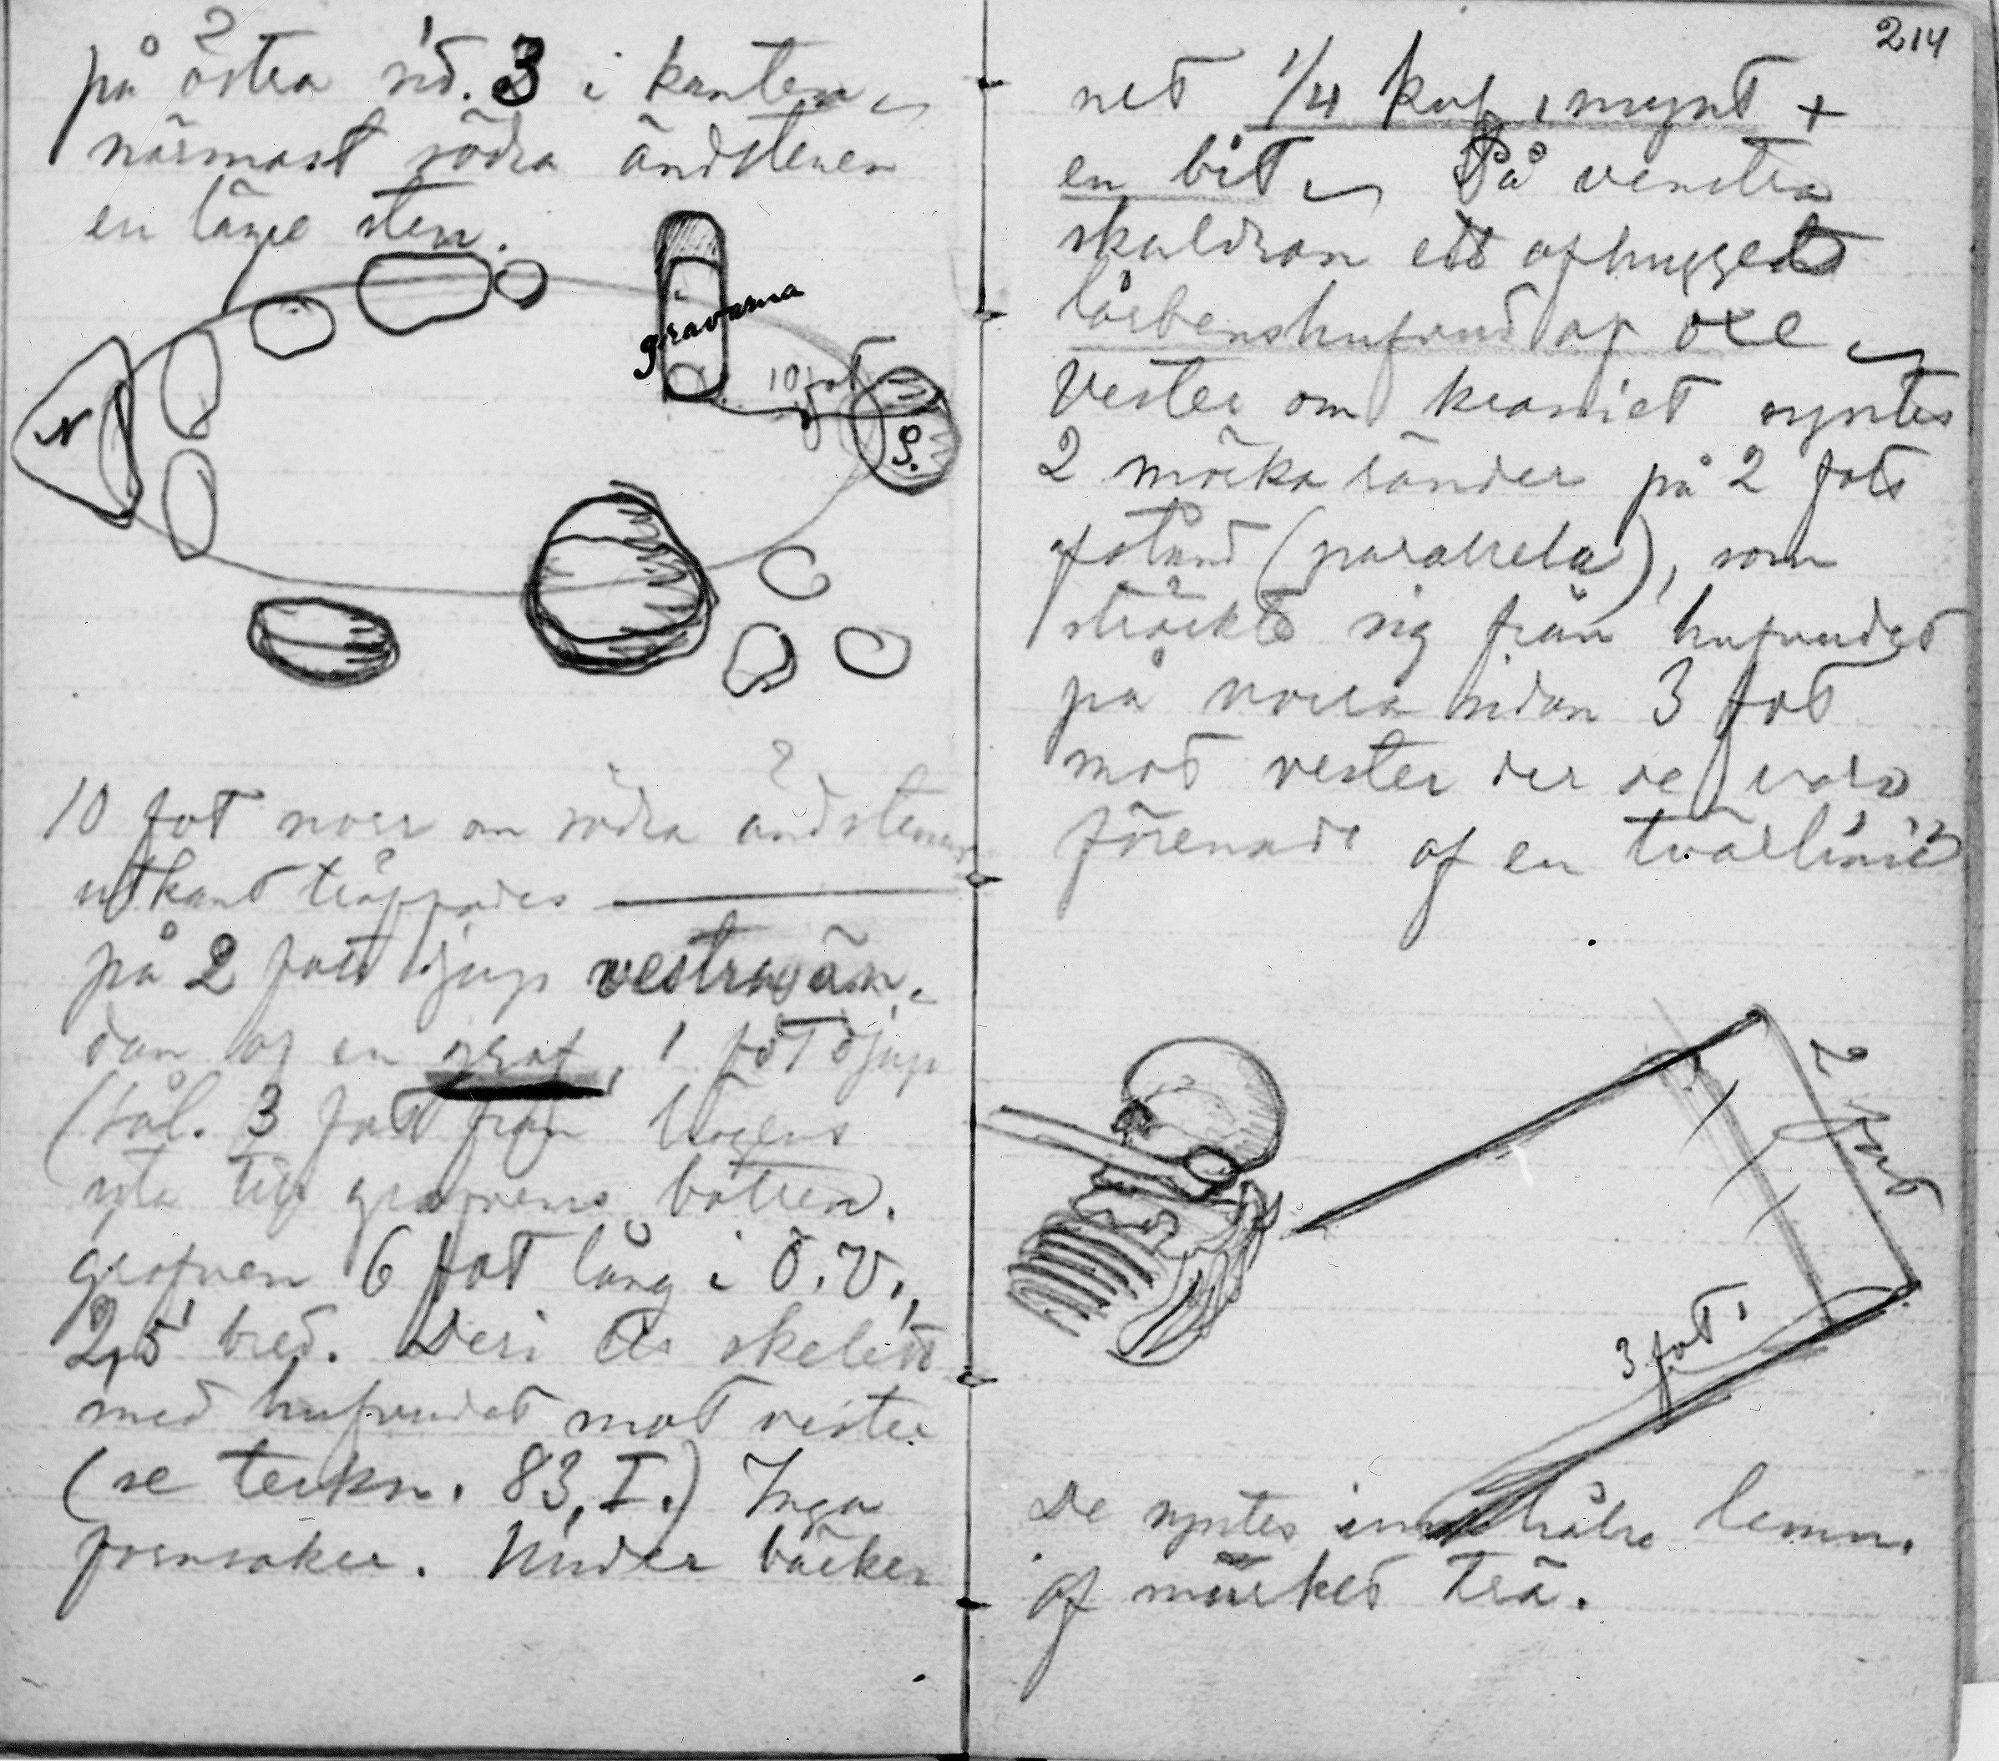 på östra sid. 3 i kanten
närmast södra ändstenen
en läge sten.
gravarna
10 fot
N
S.
10 fot norr om södra ändstenens
utkant träffades
på 2 fots djup vestra än-
dan af en graf, 1 fot djup
(sål. 3 fot från högens
yta till grafvens botten.
grafven 6 fot lång i Ö.V.,
2,5 bred. Deri ett skelett
med hufvudet mot vester
(se teckn. 83, I.) Inga
fornsaker. Under bäcken
214
net 1/4 kuf. mynt +
en bit På venstra
skuldran ett afhugget
lårbenshufvud af oxe
Vester om kraniet syntes
2 mörka ränder på 2 fots
afstånd (parallela), som
sträckte sig från hufvudet
på norra sidan 3 fot
mot vester der de voro
förenade af en tvärlinie
2 fot
3 fot
De syntes innehålla lemn.
af murket trä.